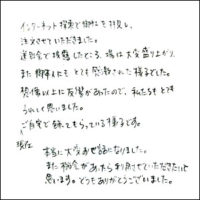 インターネット検索で御社を拝見し、
注文させていただきました。
送別会で披露したところ、場は大変盛り上がり、
また御本人も とても感激された様子でした。
想像以上に反響があったので、私たちも とても
うれしく思いました。
ご自宅で 飾ってもらっている様子です。
この度は
本当に大変お世話になりました。
また機会があったら利用させていただきたいと
思います。どうもありがとうございました。